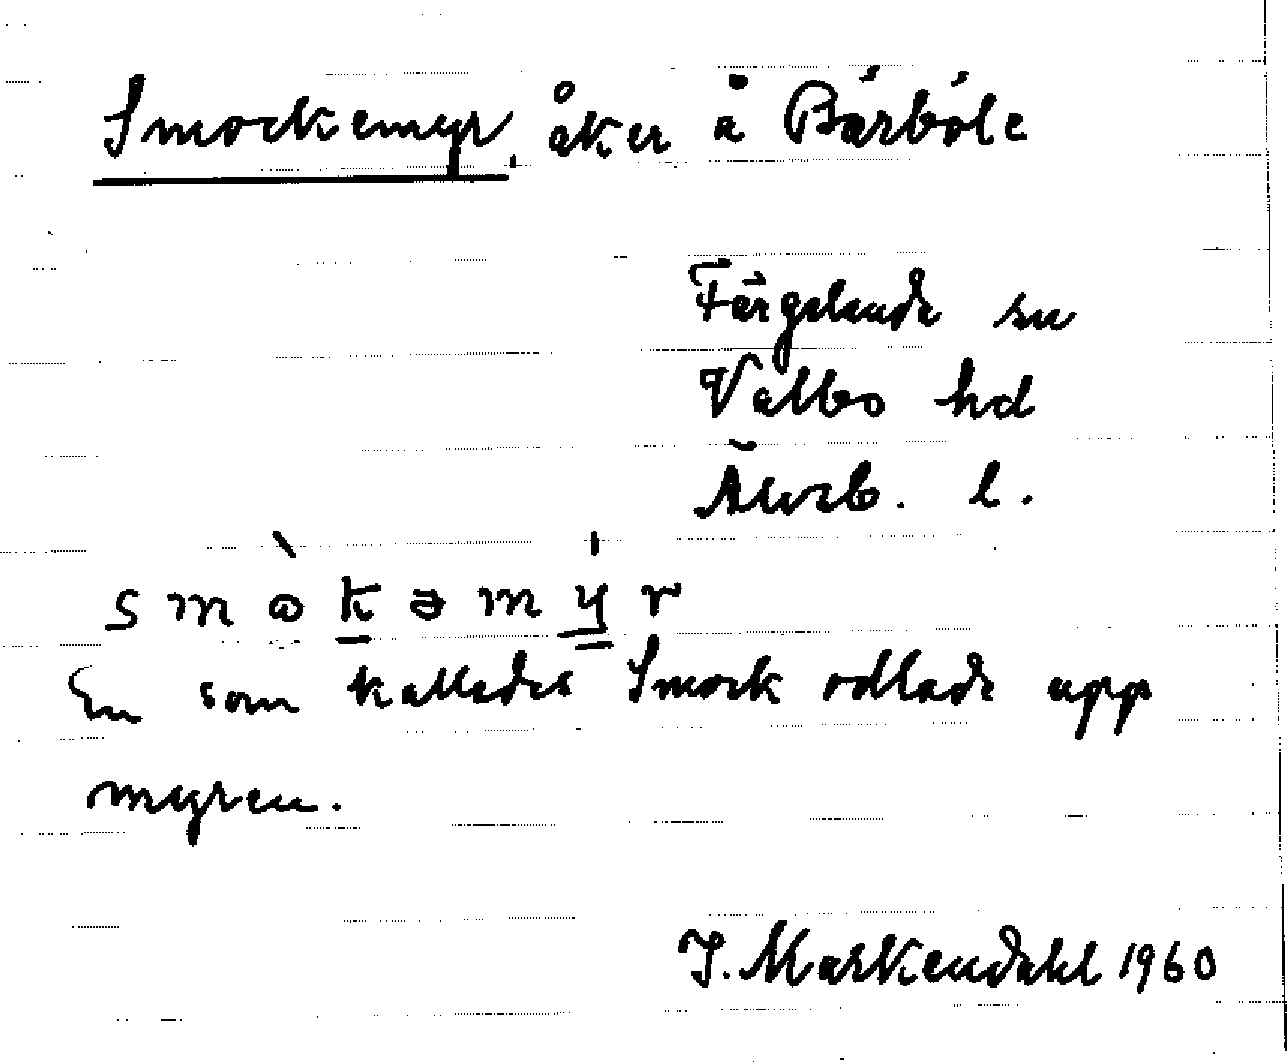 Smockemyr, åker å Bärböle
Färgelanda sn
Valbo hd
Älvsb. l.
smòkəmýr
En som kallades Smock odlade upp
myren.
J. Markendahl 1960